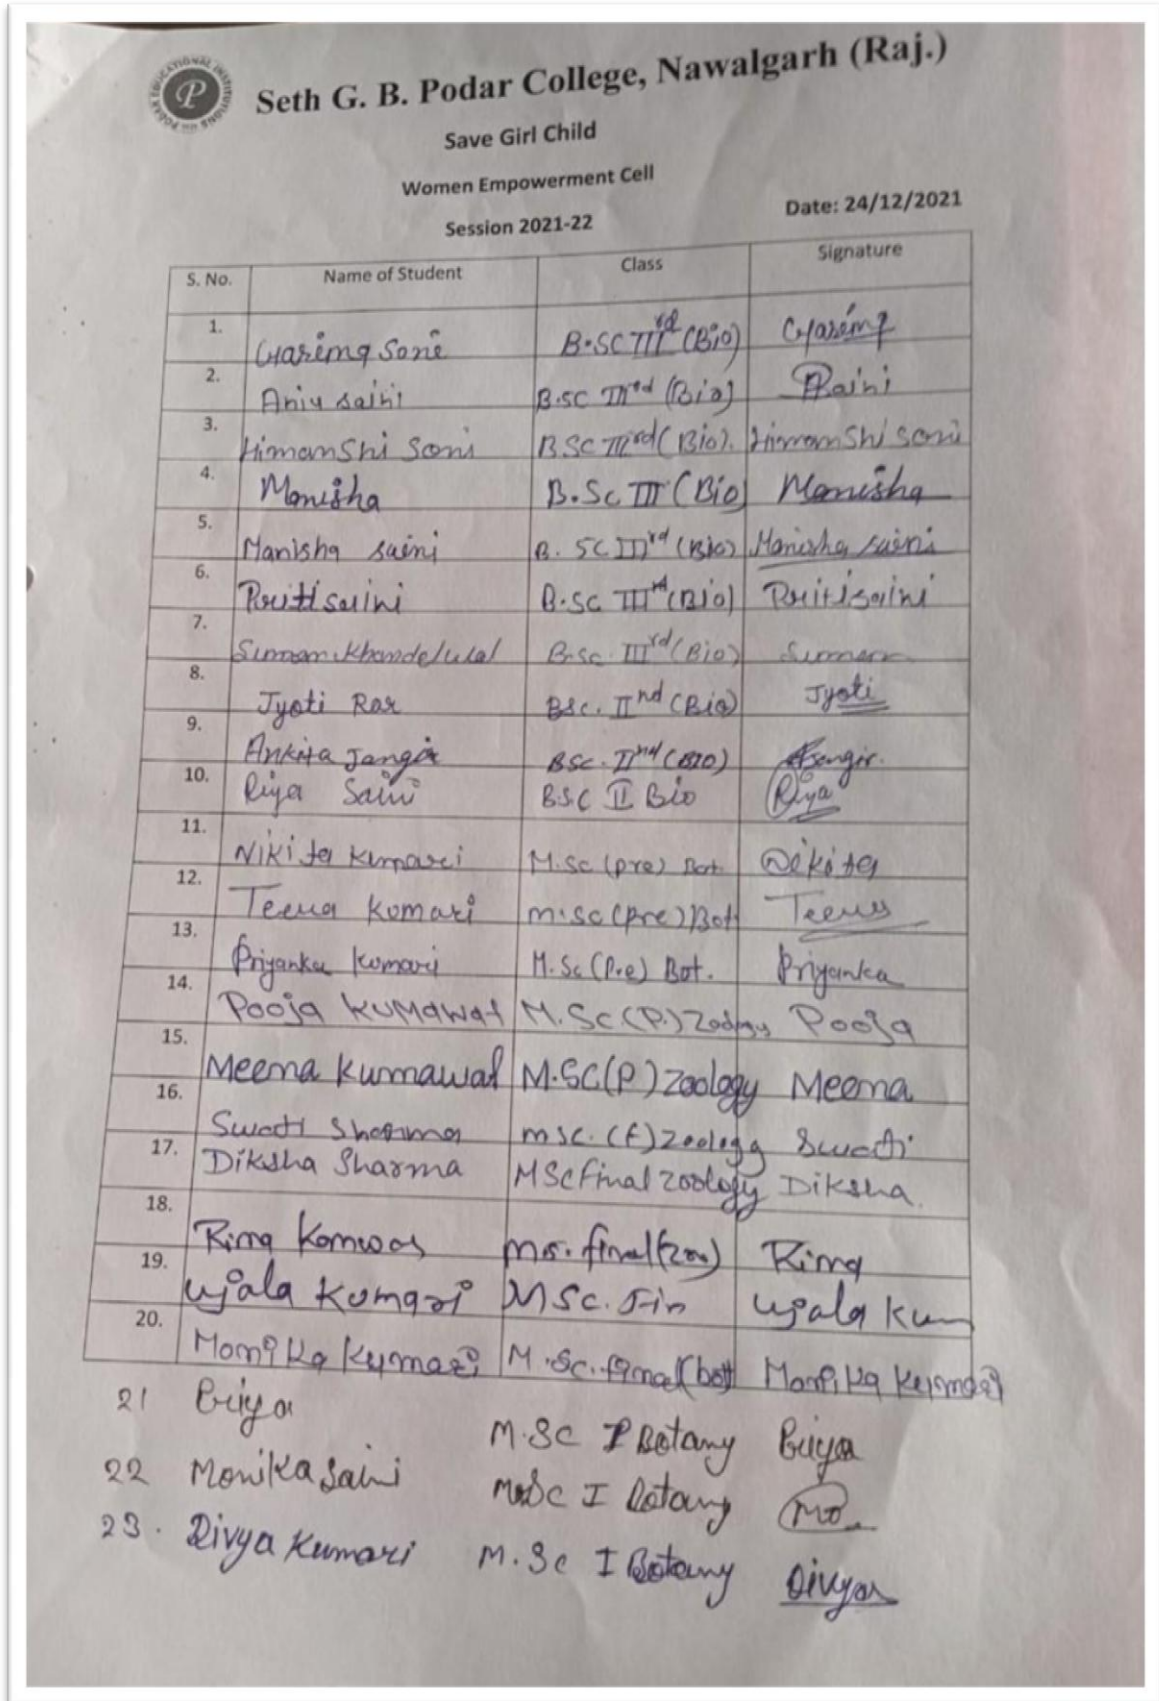 PODAR EDUCATIONAL INSTITUTIONS
P
Seth G. B. Podar College, Nawalgarh (Raj.)
Save Girl Child
Women Empowerment Cell
Session 2021-22
Date: 24/12/2021
S. No. Name of Student Class Signature
1. Garima Soni B.SC IIIrd (Bio) Garima
2. Anju Saini B.SC IIIrd (Bio) Saini
3. Himanshi Soni BSC IIIrd (Bio). Himanshi Soni
4. Monisha B.Sc III (Bio) Monisha
5. Manisha Saini B. SC IIIrd (Bio) Manisha Saini
6. Priti Saini B.SC IIIrd (Bio) Priti Saini
7. Suman Khandelwal B.Sc. IIIrd (Bio) Suman
8. Jyoti Rar BSc. IInd (Bio) Jyoti
9. Ankita Jangir BSC. IInd (BIO) Jangir.
10. Riya Saini B.S.C II Bio Riya
11. Nikita Kumari M.Sc (pre) Bot. Nikita
12. Teena Kumari M.Sc (pre) Bot Teena
13. Priyanka Kumari M.Sc (Pre) Bot. Priyanka
14. Pooja Kumawat M.Sc (P.) Zoology Pooja
15. Meena Kumawat M.SC(P) Zoology Meena
16. Swati Sharma MSC. (F) Zoology Swati
17. Diksha Sharma MSc Final Zoology Diksha.
18. Rima final (Zoo) Rima
19. Ujala Kumari MSc. Fin Ujala Kum
20. Monika Kumari M.Sc. final (bot) Monika Kumari
21 Priya M.SC I Botany Priya
22 Monika Saini MSc I Botany Mo.
23. Divya Kumari M.Sc I Botany Divya